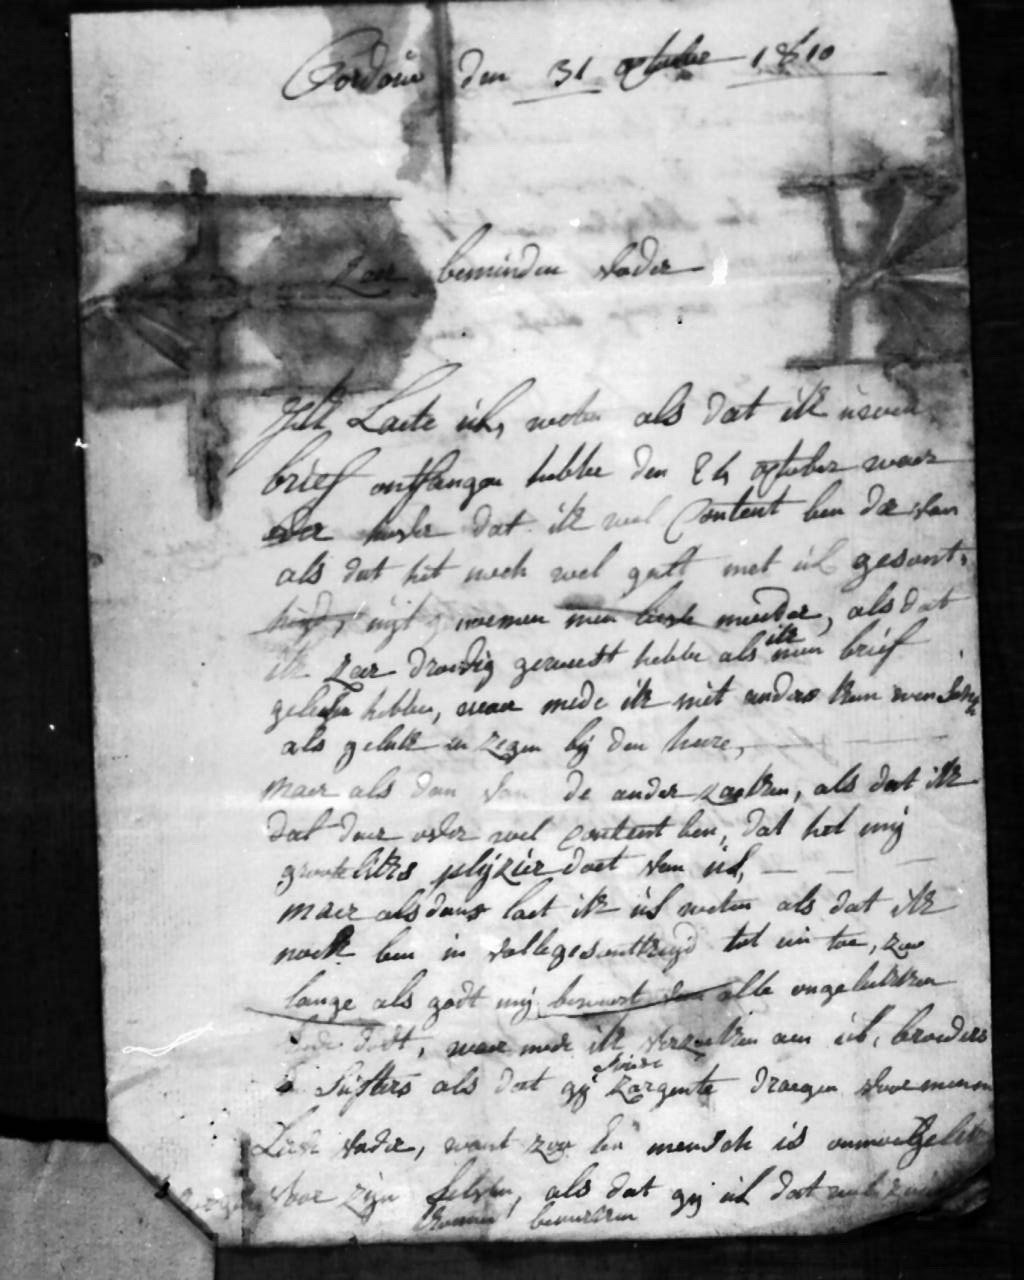 Cordoüe den 31 octuber 1810
Zeer beminden vader
Jek Laete ül, weten als dat ik üwen
brief ontfangen hebbe den 24 octuber waer
over dat ik wel Content ben daer van
als dat het noch wel gatt met ül gesont,
heijd, uijt genomen men lieve moeder, als dat
ik zeer drovig geweest hebbe als ik men brief
gelesen hebbe, waer mede ik niet anders kan wenschen
als geluk en zegen bij den heere,
maer als dan van de ander zaeken, als dat ik
dat daer over wel Content ben, dat het mij
grootelikxs plijzier doet van ül,
maer als dans laet ik ül weten als dat ik
noch ben in volle gesontheijd tot nu toe, zoo
lange als godt mij bewaert van alle ongelukken
dodt, waer mede ik verzoeken aen ül, broeders
Susters als dat gij zoude zorge draegen voor menen
Lieve vader, want zoo een mensch is onmoegelik
voor zijn selven, als dat gij ül dat wel
konnen bemerken